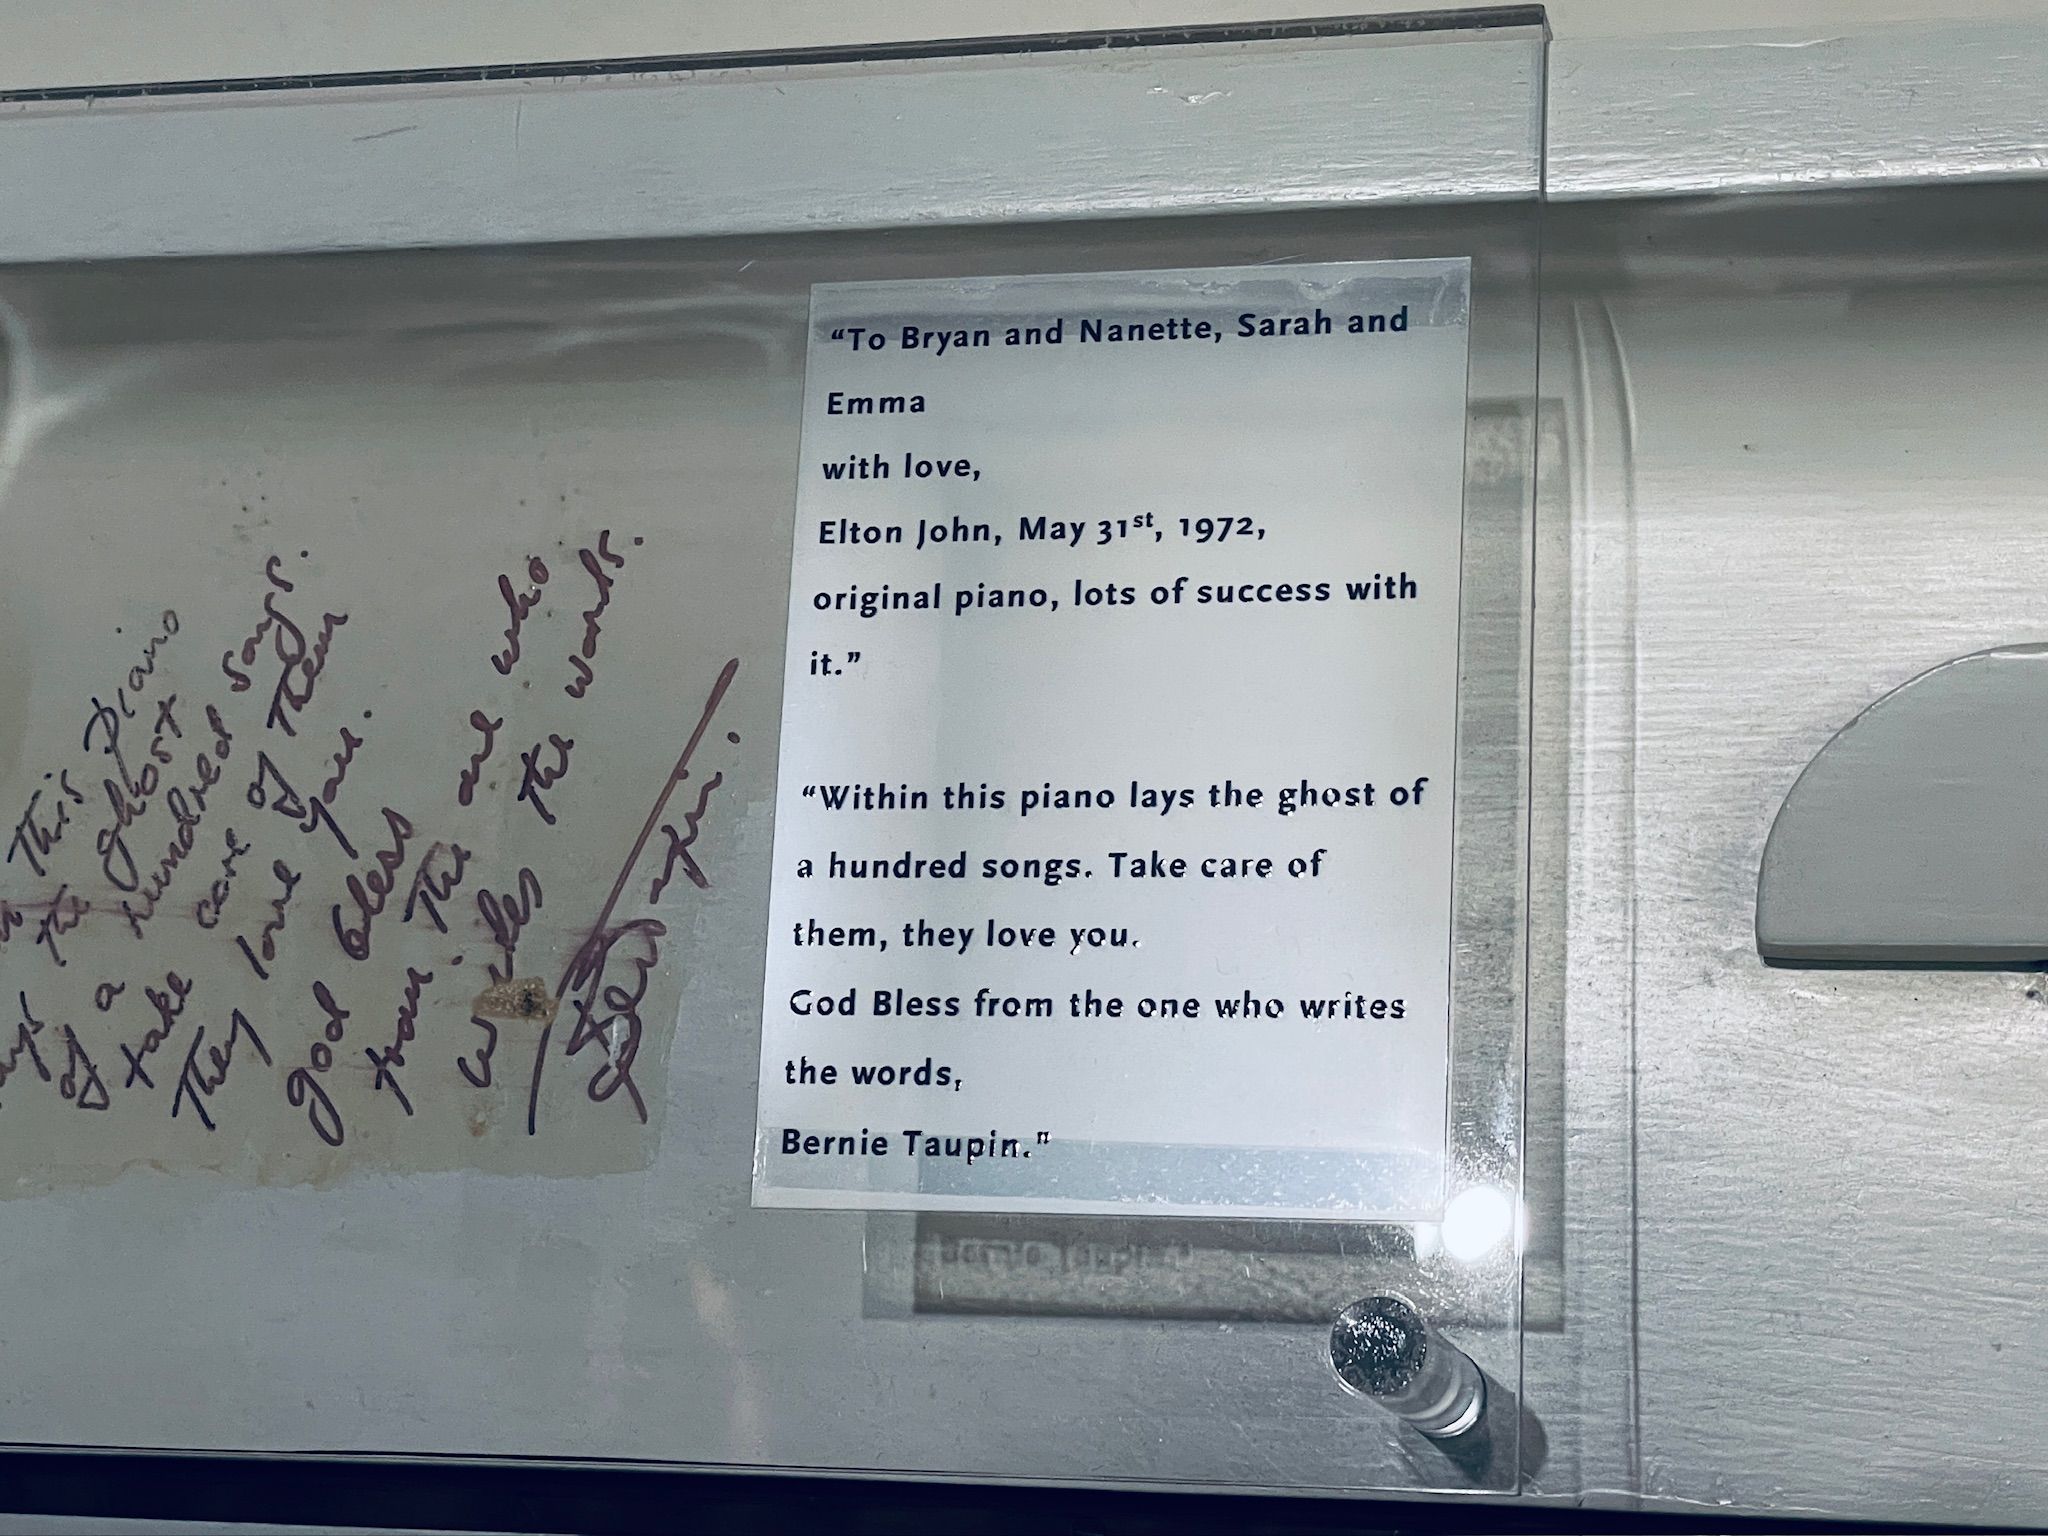 this piano
the ghost
of a hundred songs.
take care of them
They love you.
god bless
from. The one who
writes the words.
“To Bryan and Nanette, Sarah and
Emma
with love,
Elton John, May 31st, 1972,
original piano, lots of success with
it.”
“Within this piano lays the ghost of
a hundred songs. Take care of
them, they love you.
God Bless from the one who writes
the words,
Bernie Taupin."